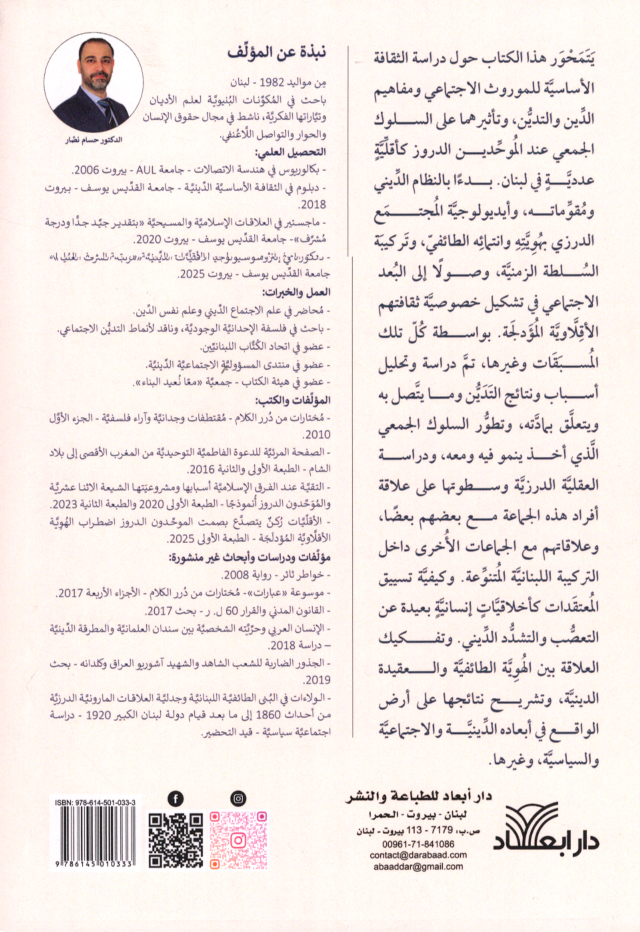 يَتَمَحْوَر هذا الكتاب حول دراسة الثقافة
الأساسيَّة للموروث الاجتماعي ومفاهيم
الدِّين والتديُّن، وتأثيرهما على السلوك
الجمعي عند الموحِّدين الدروز كأقلِّيَّةٍ
عدديَّةٍ في لبنان. بدءًا بالنظام الدِّيني
ومُقوِّماته، وأيديولوجيَّة المُجتمَع
الدرزي بهُوِيَّتِه وانتمائِه الطائفيّ، وتَركيبَة
السُلطة الزمنيَّة، وصولًا إلى البُعد
الاجتماعي في تشكيل خصوصيَّة ثقافتهم
الأقِلَّاويَّة المُؤَدلَجَة. بواسطة كُلّ تلك
المُسبَقات وغيرها، تمَّ دراسة وتحليل
أسباب ونتائج التَدَيُّن وما يتَّصل به
ويتعلَّق بمادَّته، وتطوُّر السلوك الجمعي
الَّذي أخذ ينمو فيه ومعه، ودراسة
العقليَّة الدرزيَّة وسطوتها على علاقة
أفراد هذه الجماعة مع بعضهم بعضًا،
وعلاقاتهم مع الجماعات الأُخرى داخل
التركيبة اللبنانيَّة المُتنوِّعة. وكيفيَّة تسييق
المُعتقَدات كأخلاقيَّاتٍ إنسانيَّةٍ بعيدة عن
التعصُّب والتشدُّد الدِّيني. وتفكيك
العلاقة بين الهُوِيَّة الطائفيَّة والعقيدة
الدينيَّة، وتشريح نتائجها على أرض
الواقع في أبعاده الدِّينيَّة والاجتماعيَّة
والسياسيَّة، وغيرها.
نبذة عن المؤلِّف
مِن مواليد 1982 - لبنان
باحث في المُكوِّنات البُنيويَّة لعلم الأديان
وتيَّاراتها الفكريَّة، ناشط في مجال حقوق الإنسان
والحوار والتواصل اللَّاعُنفي.
الدكتور حسام نصَّار
التحصيل العلمي:
- بكالوريوس في هندسة الاتصالات - جامعة AUL - بيروت 2006.
- دبلوم في الثقافة الأساسيَّة الدِّينيَّة - جامعة القدِّيس يوسف - بيروت
2018.
- ماجستير في العلاقات الإسلاميَّة والمسيحيَّة «بتقدير جيِّد جدًّا ودرجة
مُشرِّف»- جامعة القدِّيس يوسف - بيروت 2020.
جامعة القدِّيس يوسف - بيروت 2025.
العمل والخبرات:
- مُحاضر في علم الاجتماع الدِّيني وعلم نفس الدِّين.
- باحث في فلسفة الإحدانيَّة الوجوديَّة، وناقد لأنماط التديُّن الاجتماعي.
- عضو في اتحاد الكُتَّاب اللبنانيِّين.
- عضو في منتدى المسؤوليَّة الاجتماعيَّة الدِّينيَّة.
- عضو في هيئة الكتاب - جمعيَّة «معًا نُعيد البناء».
المؤلَّفات والكتب:
- مُختارات من دُرر الكلام - مُقتطفات وجدانيَّة وآراء فلسفيَّة - الجزء الأوَّل
2010.
- الصفحة المرئيَّة للدعوة الفاطميَّة التوحيديَّة من المغرب الأقصى إلى بلاد
الشام - الطبعة الأولى والثانية 2016.
- التقيَّة عند الفرق الإسلاميَّة أسبابها ومشروعيّتها الشيعة الاثنا عشريَّة
والمُوَحِّدون الدروز أُنموذجًا - الطبعة الأولى 2020 والطبعة الثانية 2023.
- الأقلِّيَّات رُكنٌ يتصدَّع بصمت الموحِّدون الدروز اضطراب الهُوِيَّة
الأقلَّاويَّة المُؤدلَجَة - الطبعة الأولى 2025.
مؤلَّفات ودراسات وأبحاث غير منشورة:
- خواطر ثائر - رواية 2008.
- موسوعة «عبارات»- مُختارات من دُرر الكلام - الأجزاء الأربعة 2017.
- القانون المدني والقرار 60 ل. ر - بحث 2017.
- الإنسان العربي وحرِّيَّته الشخصيَّة بين سندان العلمانيَّة والمطرقة الدِّينيَّة
– دراسة 2018.
- الجذور الضاربة للشعب الشاهد والشهيد آشوريو العراق وكلدانه - بحث
2019.
- الولاءات في البُنى الطائفيَّة اللبنانيَّة وجدليَّة العلاقات المارونيَّة الدرزيَّة
من أحداث 1860 إلى ما بعد قيام دولة لبنان الكبير 1920 - دراسة
اجتماعيَّة سياسيَّة - قيد التحضير.
دار أبعاد للطباعة والنشر
لبنان - بيروت - الحمرا
ص.ب، 7179 - 113 بيروت - لبنان
00961-71-841086
contact@darabaad.com
abaaddar@gmail.com
دار ابعاد
ISBN: 978-614-501-033-3
9 786145 010333